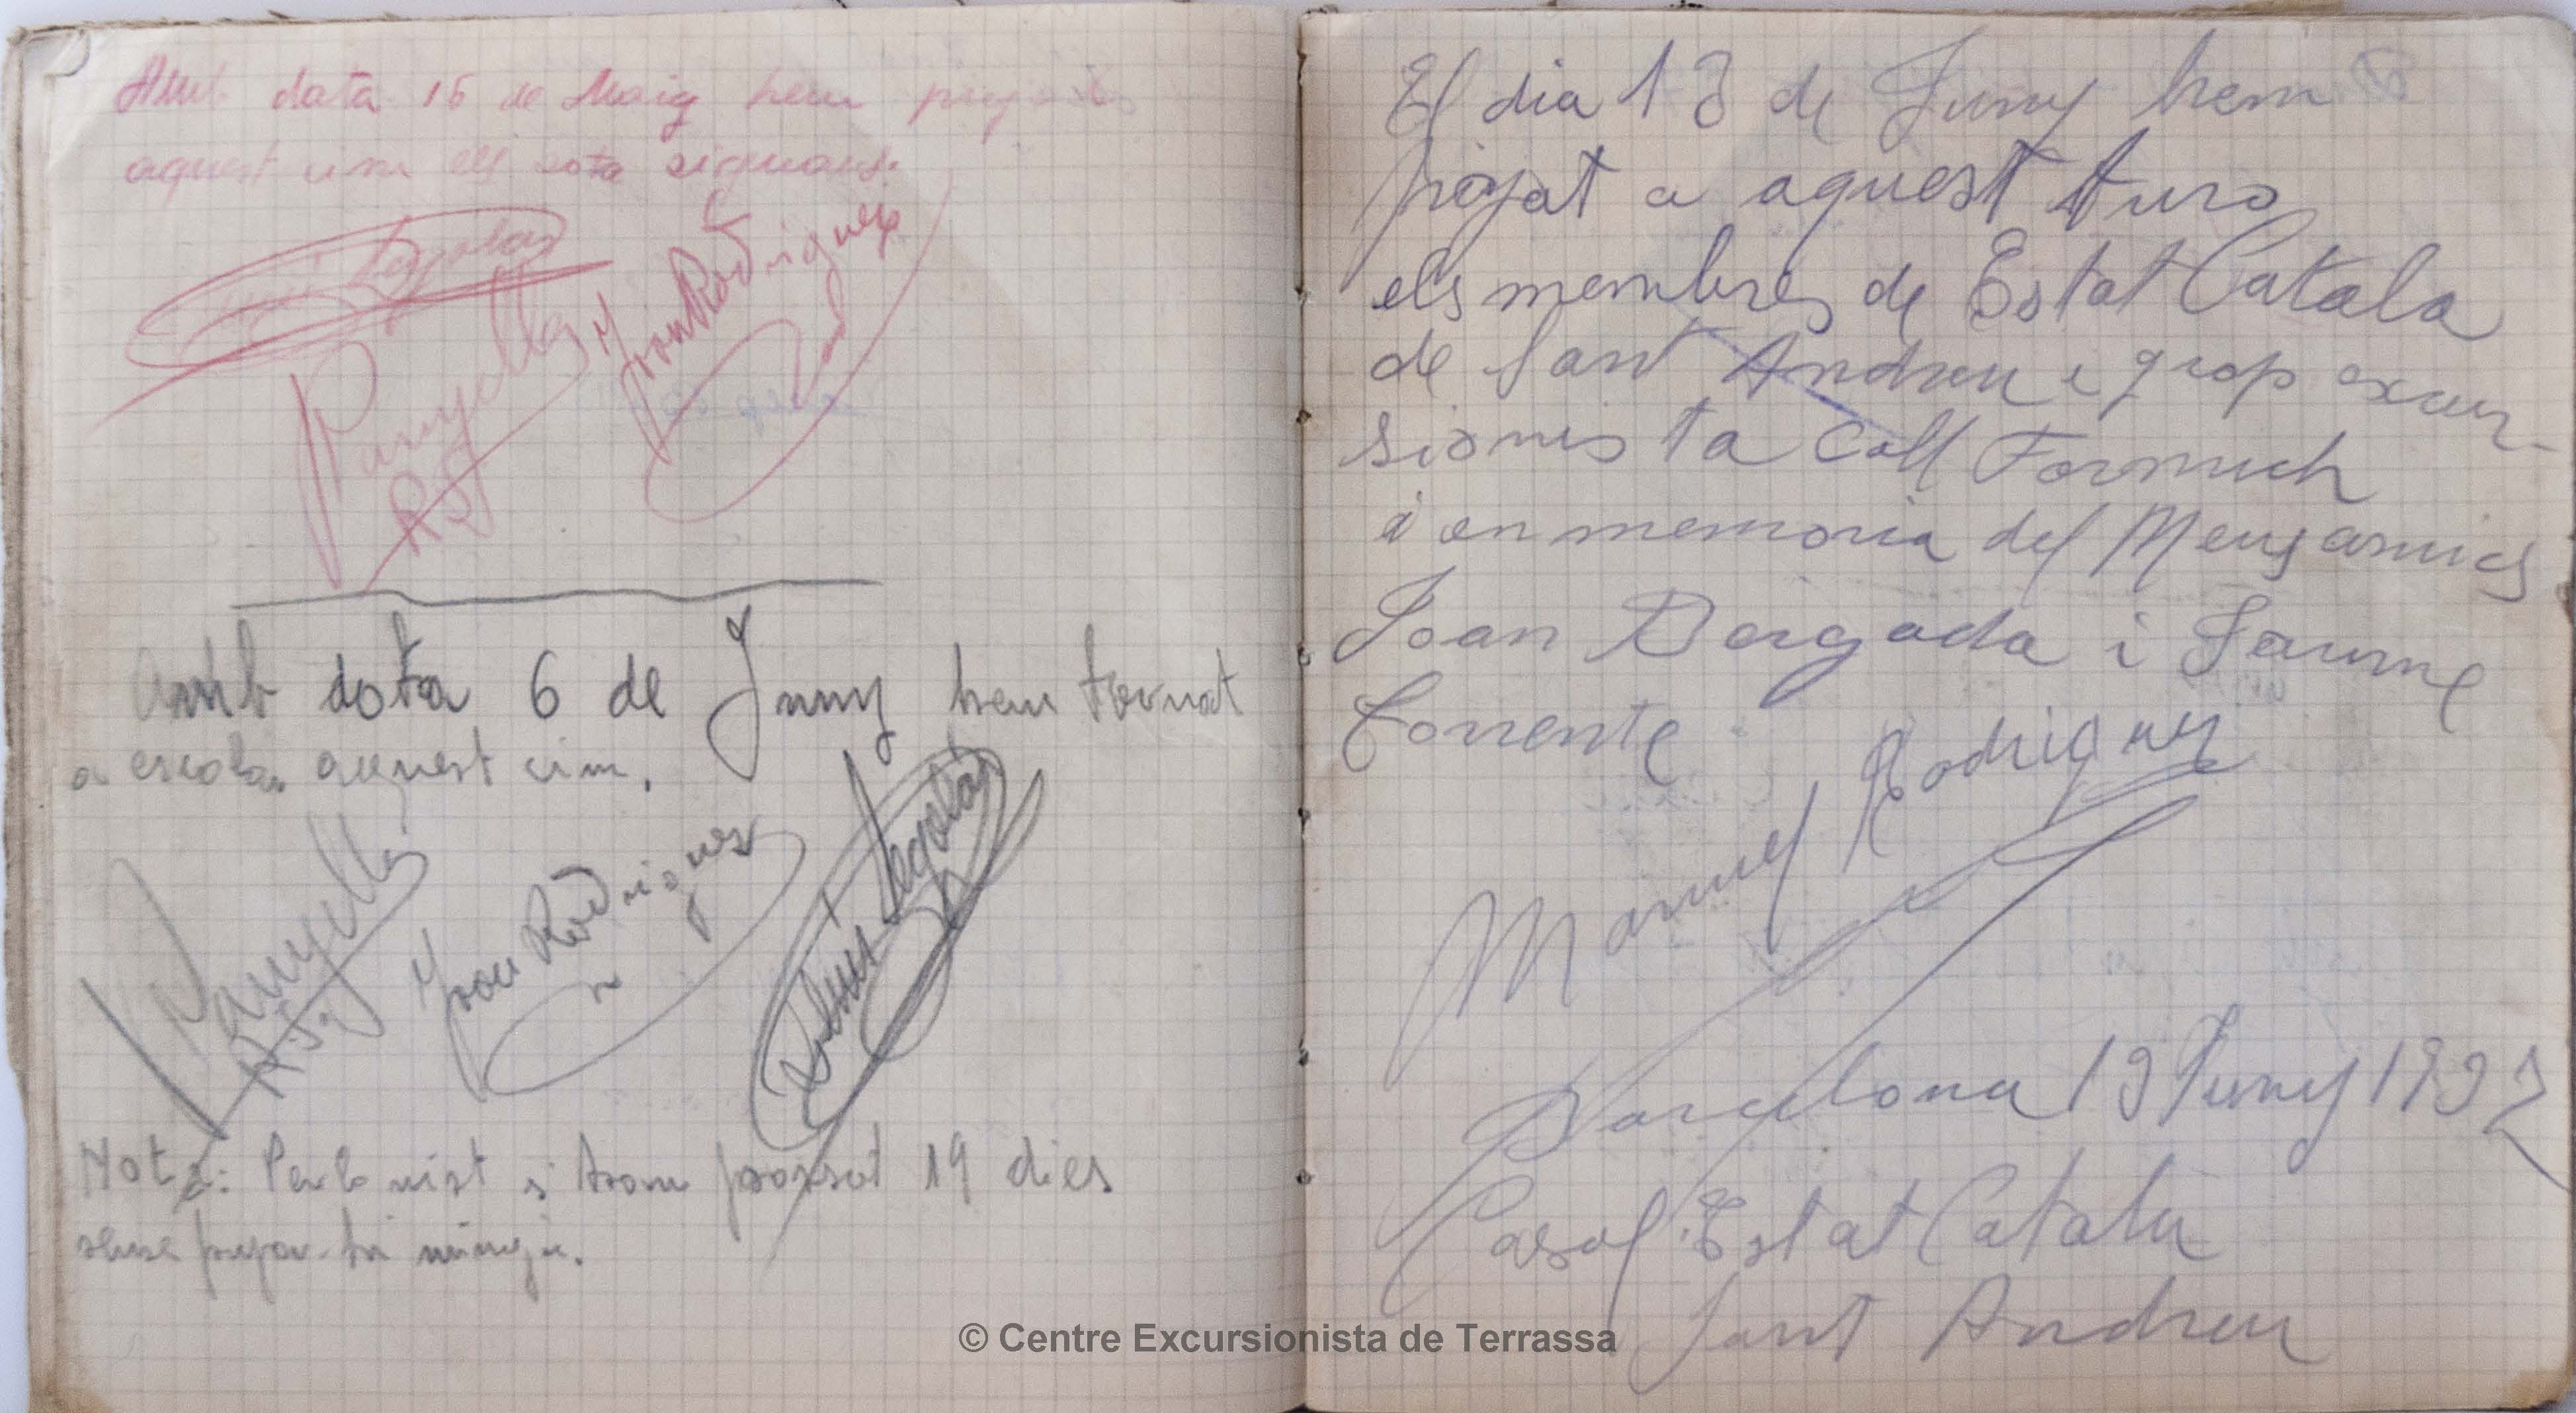 Amb data 16 de Maig hem pujat
aquest cim els sota signans.
Segolas
Panyella
R. S.
Joan Rodriguez
Amb data 6 de Juny hem tornat
a escalar aquest cim.
Panyella
Joan Rodriguez
Segolas
Nota: Per lo vist s'haura passat 19 dies
sense pujar-hi ningú.
El dia 13 de Juny hem
pojat a aquest turo
els membres de Estat Catala
de Sant Andreu i grop excur-
sionista Coll Formich
i en memoria del Meus amics
Joan Bergada i Jaume
Torrente
Manuel Rodriguez
Barcelona 13 Juny 1937
Casal Estat Català
Sant Andreu
© Centre Excursionista de Terrassa